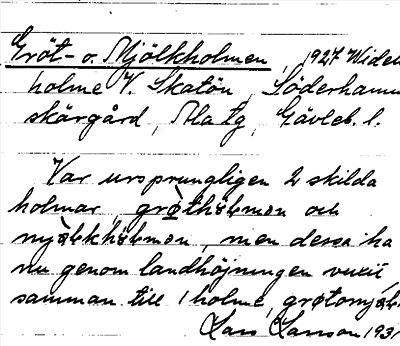 Gröt- o. Mjölkholmen, 1927 Widen
holme V. Skatön, Söderhamn
skärgård, Ala tg, Gävleb. l.
Var ursprungligen 2 skilda
holmar, och
men dessa ha
nu genom landhöjningen vuxit
samman till 1 holme,
Lars Larsson 193